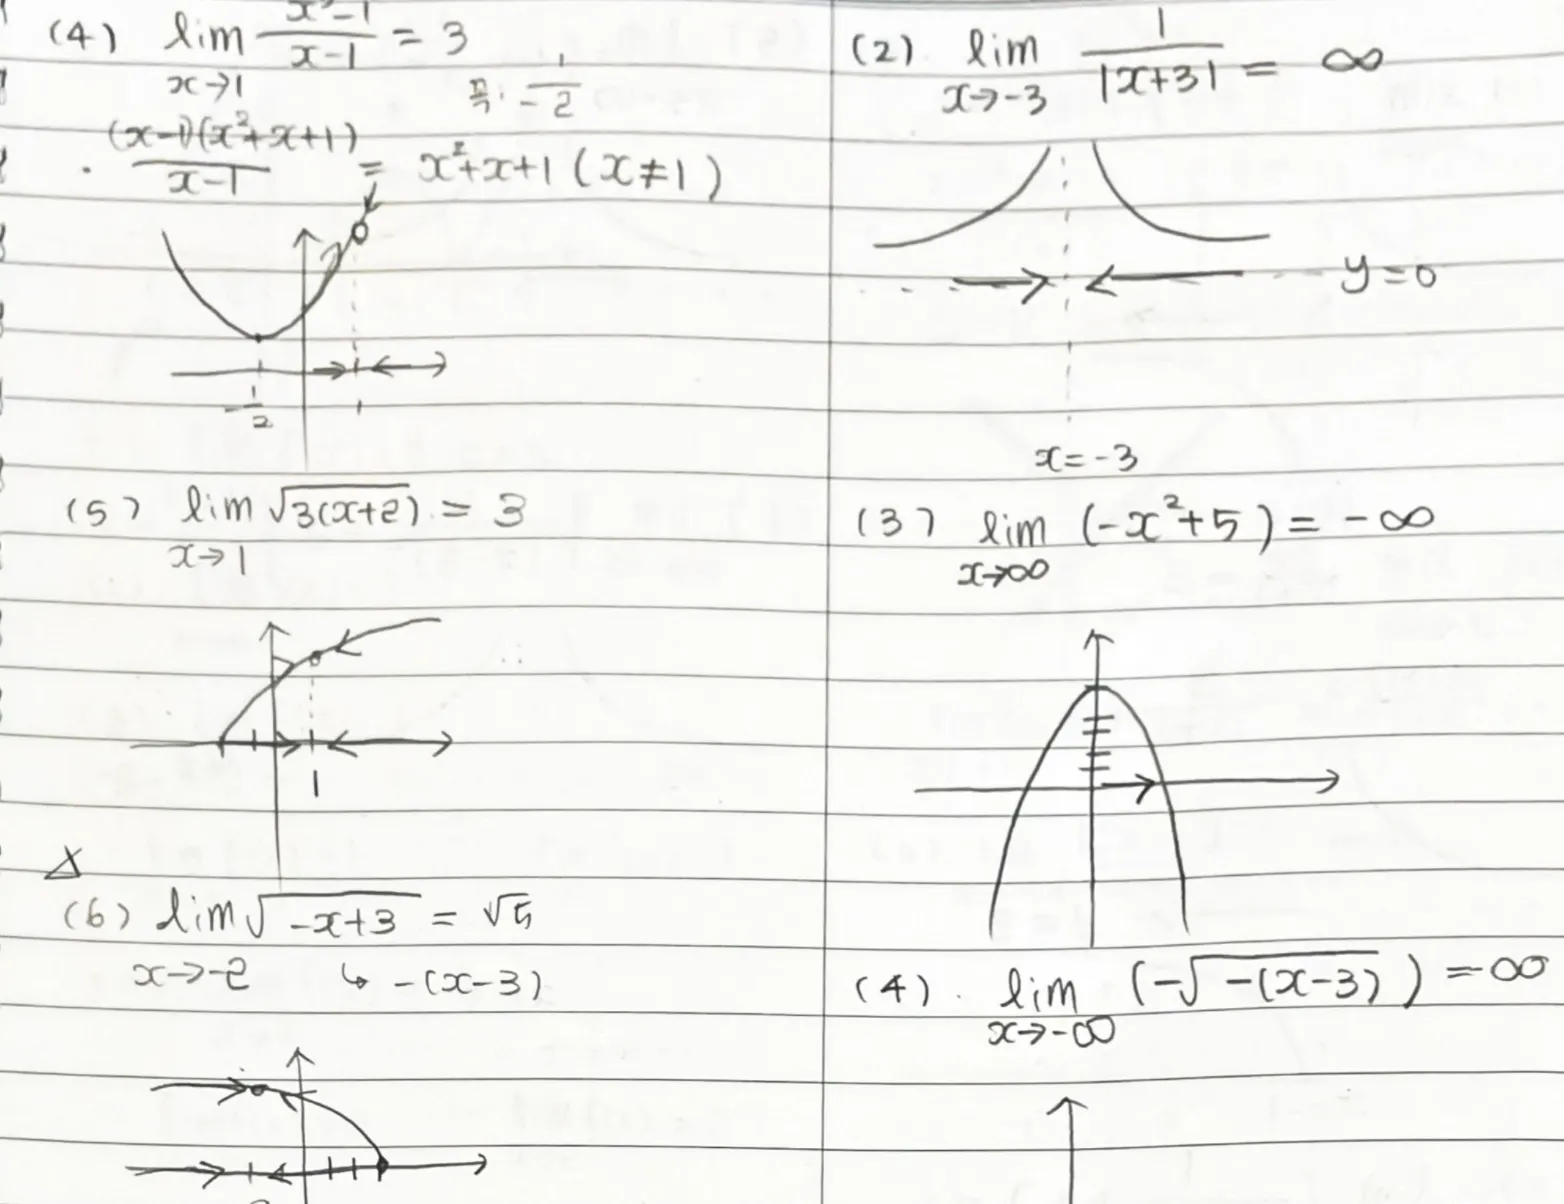 (4) lim x→1 (x³-1)/(x-1) = 3
-1/2
(x-1)(x²+x+1)/(x-1) = x²+x+1 (x≠1)
-1/2 1
(5) lim x→1 √3(x+2) = 3
1
(6) lim x→-2 √-x+3 = √5
↳ -(x-3)
(2) lim x→-3 1/|x+3| = ∞
y=0
x=-3
(3) lim x→∞ (-x²+5) = -∞
(4). lim x→-∞ (-√-(x-3)) = -∞